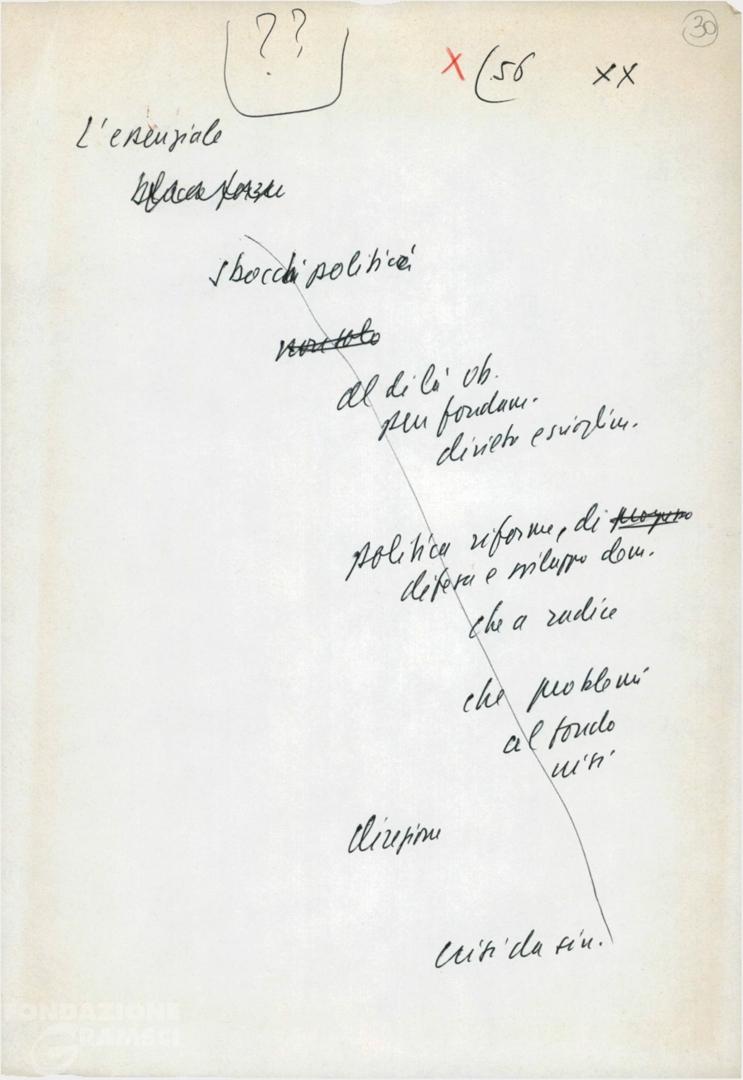 ??
30
x (56 xx
L'essenziale
sbocchi politici
non solo
al di là ob.
pur fondam.
divieto e scioglim.
politica riforme, di
difesa e sviluppo dem.
che a radice
che problemi
al fondo
crisi
direzione
crisi da sin.
FONDAZIONE
GRAMSCI